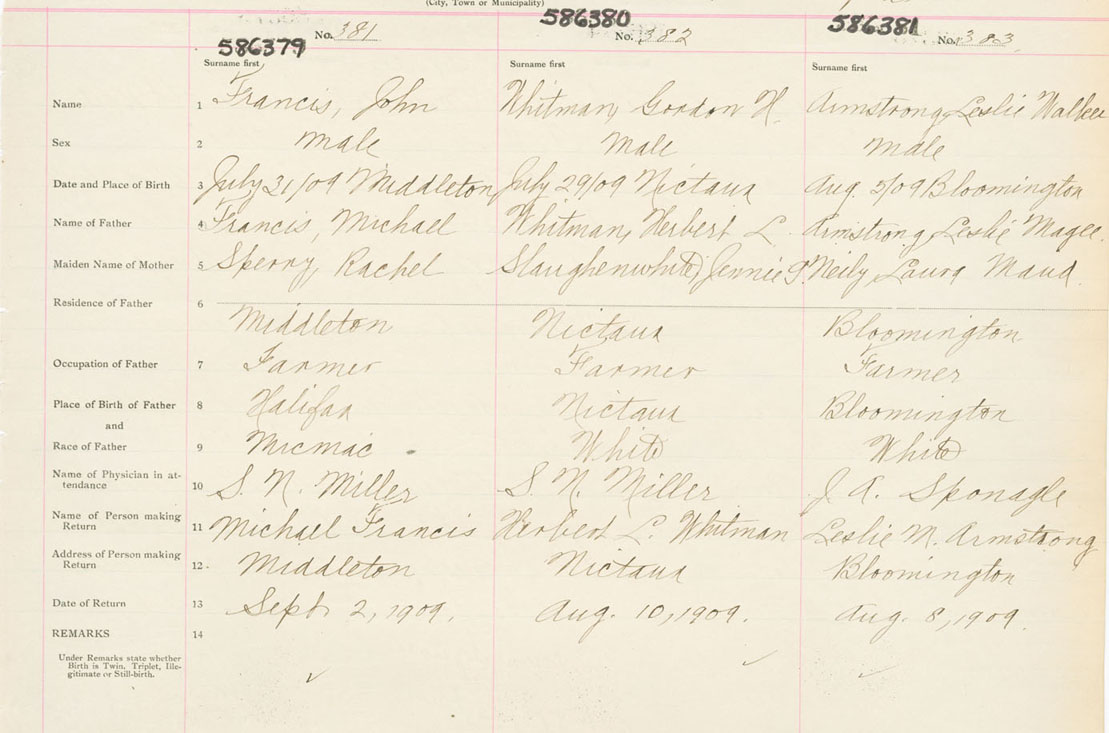 (City, Town or Municipality)
586379 No. 381 586380 No. 382 586381 No. 383
Surname first Surname first Surname first
Name 1 Francis, John Whitman, Gordon H. Armstrong, Leslie Walker
Sex 2 Male Male Male
Date and Place of Birth 3 July 31/09 Middleton July 29/09 Nictaux Aug. 5/09 Bloomington
Name of Father 4 Francis, Michael Whitman, Herbert L. Armstrong, Leslie Magee.
Maiden Name of Mother 5 Sperry, Rachel Slaughenwhite, Jennie P. Neily, Laura Maud.
Residence of Father 6 Middleton Nictaux Bloomington
Occupation of Father 7 Farmer Farmer Farmer
Place of Birth of Father 8 Halifax Nictaux Bloomington
and
Race of Father 9 Micmac White White
Name of Physician in at-
tendance 10 S. N. Miller S. N. Miller J. A. Sponagle
Name of Person making
Return 11 Michael Francis Herbert L. Whitman Leslie M. Armstrong
Address of Person making
Return 12 Middleton Nictaux Bloomington
Date of Return 13 Sept. 2, 1909. Aug. 10, 1909. Aug. 8, 1909.
REMARKS 14
Under Remarks state whether
Birth is Twin, Triplet, Ille-
gitimate or Still-birth.